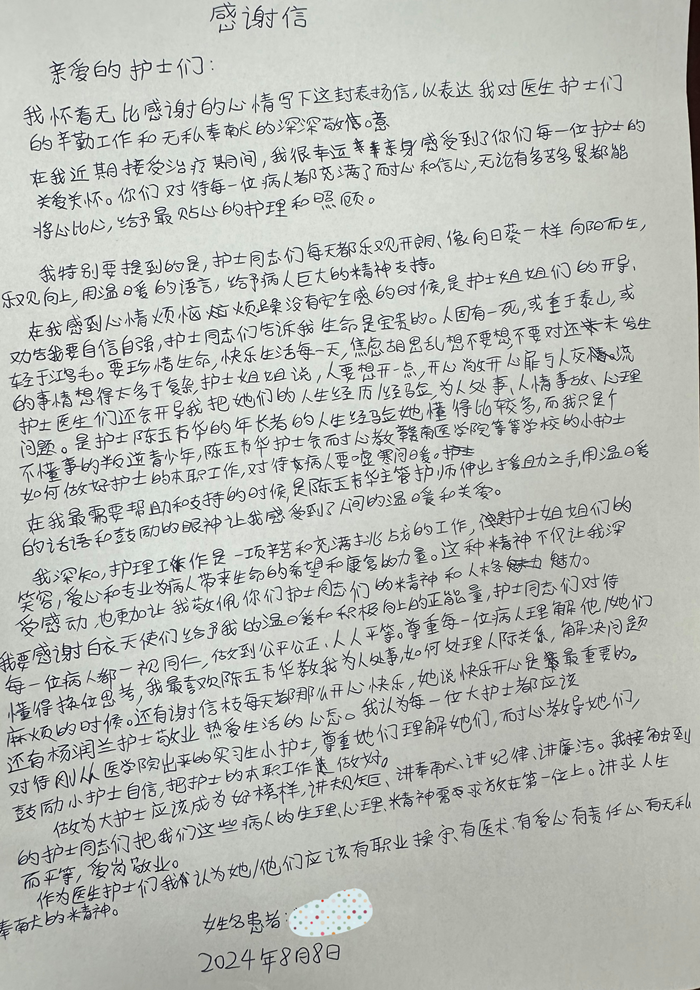 感谢信
亲爱的护士们:
我怀着无比感谢的心情写下这封表扬信,以表达我对医生护士们
的辛勤工作和无私奉献的深深敬意。
在我近期接受治疗期间,我很幸运亲身感受到了你们每一位护士的
关爱关怀。你们对待每一位病人都充满了耐心和信心,无论有多苦多累都能
将心比心,给予最贴心的护理和照顾。
我特别要提到的是,护士同志们每天都乐观开朗、像向日葵一样向阳而生,
乐观向上,用温暖的语言,给予病人巨大的精神支持。
在我感到心情烦恼烦躁没有安全感的时候,是护士姐姐们的开导、
劝告我要自信自强,护士同志们告诉我生命是宝贵的。人固有一死,或重于泰山,或
轻于鸿毛。要珍惜生命,快乐生活每一天,焦虑胡思乱想不要想不要对还未发生
的事情想得太多于复杂,护士姐姐说,人要想开一点,开心敞开心扉与人交流。
护士医生们还会开导我把她们的人生经历/经验为人处事、人情事故、心理
问题。是护士陈玉芳华的年长者的人生经验她懂得比较多,而我只是个
不懂事的叛逆青少年,陈五芳华护士会耐心教赣南医学院等等学校的小护士
如何做好护士的本职工作,对待病人要嘘寒问暖。
在我最需要帮助和支持的时候,是陈五芳华主管护师伸出援助之手,用温暖
的话语和鼓励的眼神让我感受到了人间的温暖和关爱。
我深知,护理工作是一项辛苦和充满挑战的工作,但是护士姐姐们的
笑容,爱心和专业为病人带来生命的希望和康复的力量。这种精神不仅让我深
受感动,也更加让我敬佩你们护士同志们的精神和人格魅力。
我要感谢白衣天使们给予我的温暖和积极向上的正能量,护士同志们对待
每一位病人都一视同仁,做到公平公正、人人平等。尊重每一位病人理解他/她们
懂得换位思考,我最喜欢陈五芳华教我为人处事,如何处理人际关系,解决问题
麻烦的时候。还有谢信枝每天都那么开心快乐,她说快乐开心是最重要的。
还有杨润兰护士敬业热爱生活的心态。我认为每一位大护士都应该
对待刚从医学院出来的实习生小护士,尊重她们理解她们,耐心教导她们,
鼓励小护士自信,把护士的本职工作做好。
做为大护士应该成为好榜样,讲规矩、讲奉献、讲纪律、讲廉洁。我接触到
的护士同志们把我们这些病人的生理、心理、精神需求放在第一位上。讲求人生
而平等,爱岗敬业。
作为医生护士们我认为她/他们应该有职业操守、有医术、有爱心有责任心、有无私
奉献的精神。
姓名患者:
2024年8月8日